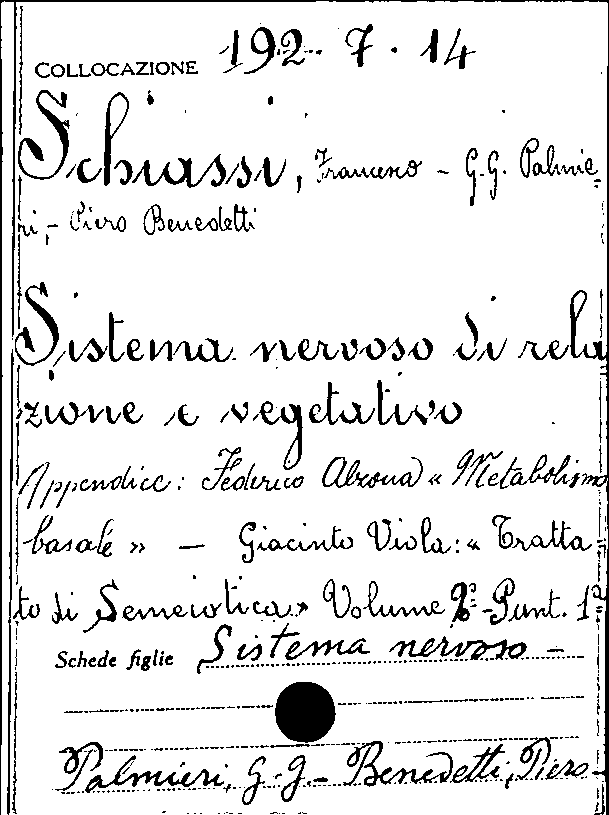 COLLOCAZIONE 192. 7. 14
Schiassi, Francesco - G.G. Palmie-
ri,- Piero Benedetti
Sistema nervoso di rela
zione e vegetativo
Appendice: Federico « Metabolismo
basale » — Giacinto Viola: « Tratta-
to di Semeiotica» Volume 2º-Punt. 1ª
Schede figlie Sistema nervoso -
Palmieri, G.G.- Benedetti, Piero-